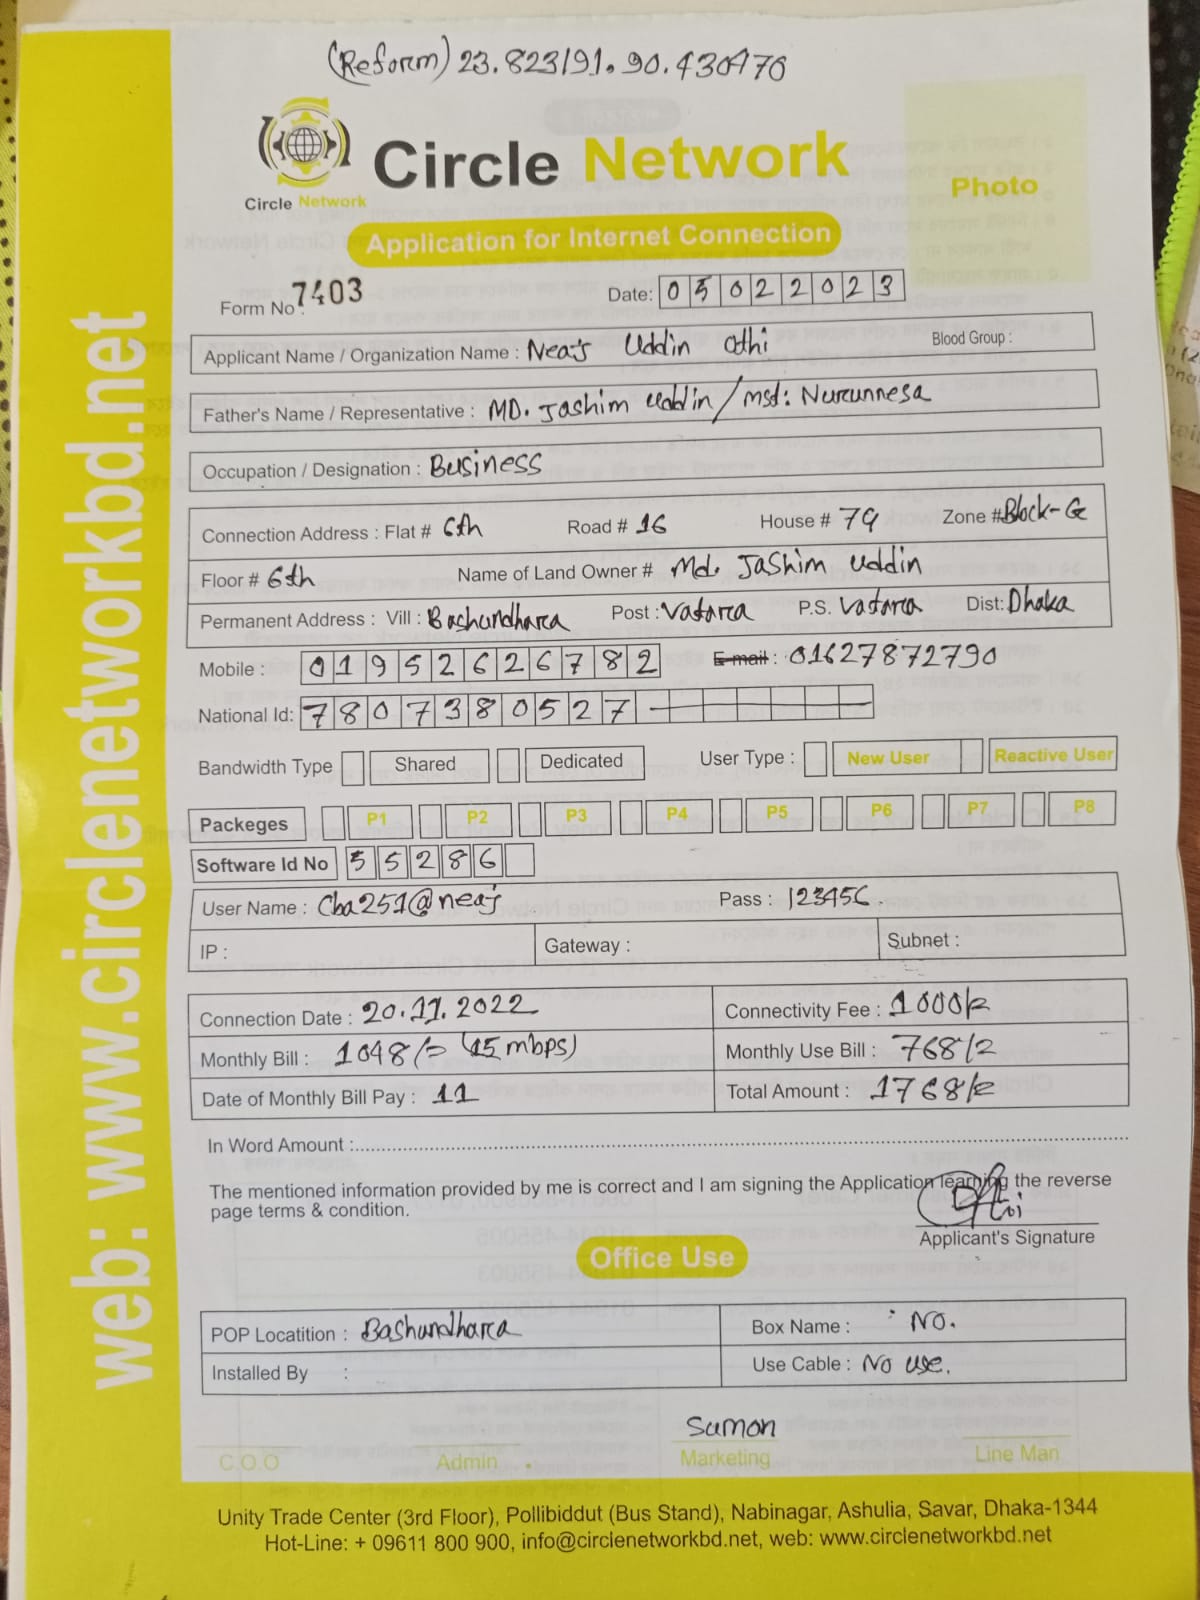 (Reform) 23.823191.90.430476
Circle Network
Circle Network
Photo
Application for Internet Connection
Form No : 7403 Date: 05022023
Applicant Name / Organization Name : Neajs Uddin Othi Blood Group :
Father's Name / Representative : MD. Jashim Uddin / mst: Nurunnesa
Occupation / Designation : Business
Connection Address : Flat # 6th Road # 16 House # 79 Zone # Block-G
Floor # 6th Name of Land Owner # Md. Jashim Uddin
Permanent Address : Vill : Bashundhara Post : Vatara P.S. Vatara Dist: Dhaka
Mobile : 01952626782 E-mail : 01627872790
National Id: 7807380527
Bandwidth Type Shared Dedicated User Type : New User Reactive User
Packeges P1 P2 P3 P4 P5 P6 P7 P8
Software Id No 55286
User Name : Cba251@neajs Pass : 123456.
IP : Gateway : Subnet :
Connection Date : 20.11.2022 Connectivity Fee : 1000/=
Monthly Bill : 1048/= (15 mbps) Monthly Use Bill : 768/=
Date of Monthly Bill Pay : 11 Total Amount : 1768/=
In Word Amount :
The mentioned information provided by me is correct and I am signing the Application learning the reverse
page terms & condition.
Othi
Applicant's Signature
Office Use
POP Locatition : Bashundhara Box Name : No.
Installed By : Use Cable : No use.
Sumon
C.O.O Admin Marketing Line Man
Unity Trade Center (3rd Floor), Pollibiddut (Bus Stand), Nabinagar, Ashulia, Savar, Dhaka-1344
Hot-Line: + 09611 800 900, info@circlenetworkbd.net, web: www.circlenetworkbd.net
web: www.circlenetworkbd.net